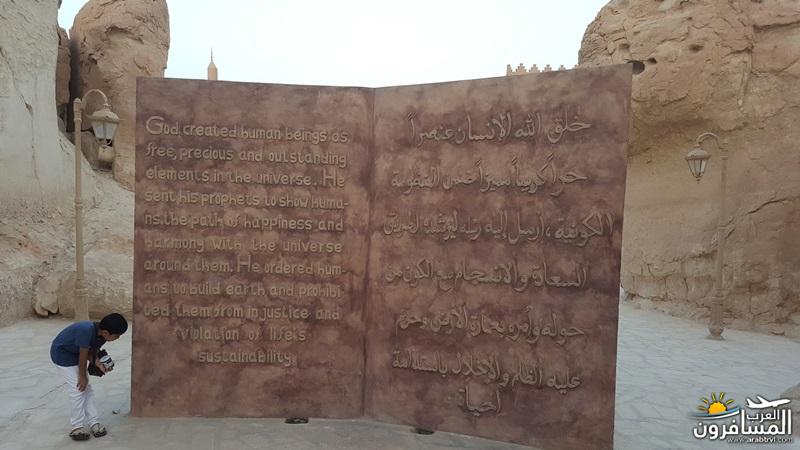 God created human beings as
free, precious and outstanding
elements in the universe. He
sent his prophets to show huma-
ns the path of happiness and
harmony with the universe
around them. He ordered hum-
ans to build earth and prohibi
ted them from injustice and
violation of life's
sustainability.
خلق الله الإنسان عنصراً
حراً كريماً مميزاً ضمن المنظومة
الكونية ، أرسل إليه رسله ليرشده لطريق
السعادة والانسجام مع الكون من
حوله وأمره بعمارة الأرض وحرم
عليه الظلم والإخلال باستدامة
الحياة .
العرب
المسافرون
www.arabtrvl.com